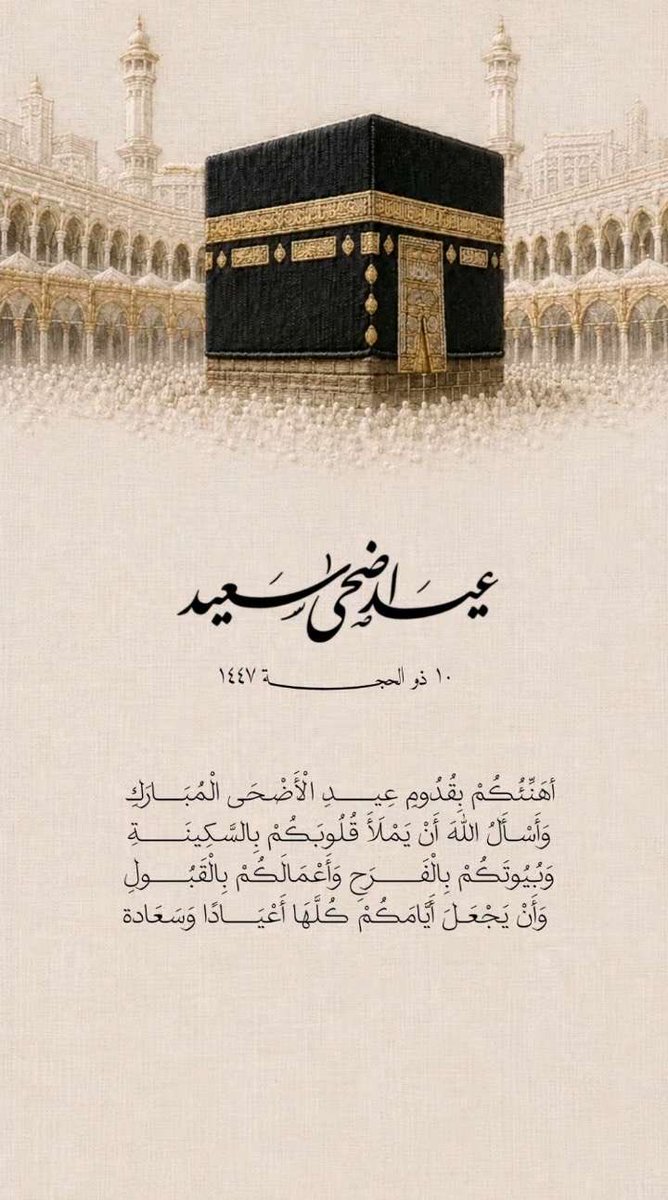 عيد اضحى سعيد
١٠ ذو الحجـــــــة ١٤٤٧
أهَنِّئُكُمْ بِقُدُومِ عِيـــدِ الْأَضْحَى الْمُبَـــارَكِ
وَأَسْــأَلُ اللهَ أَنْ يَمْلَأَ قُلُوبَكُمْ بِالسَّكِينَـــــةِ
وَبُيُوتَكُمْ بِالْفَـــرَحِ وَأَعْمَالَكُمْ بِالْقَبُـــولِ
وَأَنْ يَجْعَـلَ أَيَّامَكُمْ كُلَّهَا أَعْيَـــادًا وَسَعَادة